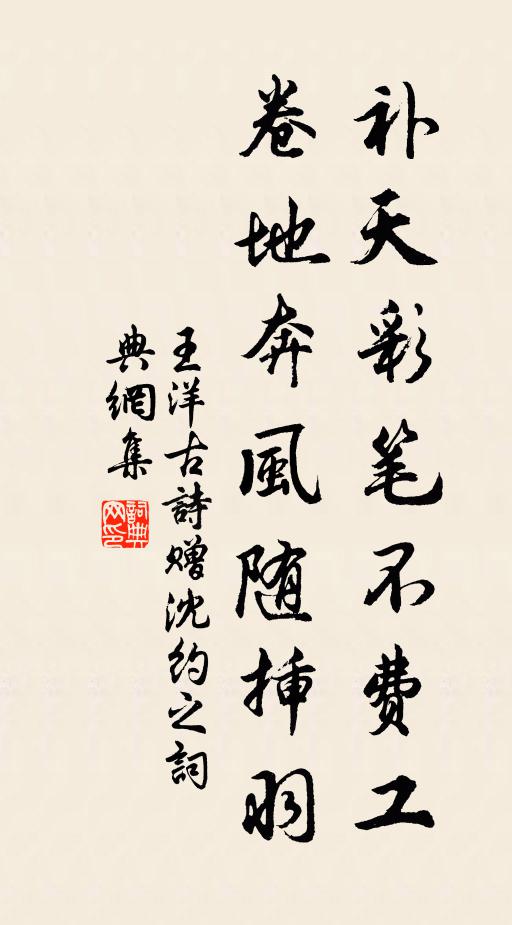 补天彩笔不费工
卷地奔風随挿羽
王洋古詩赠沈约之詞
典網集
詞典网印